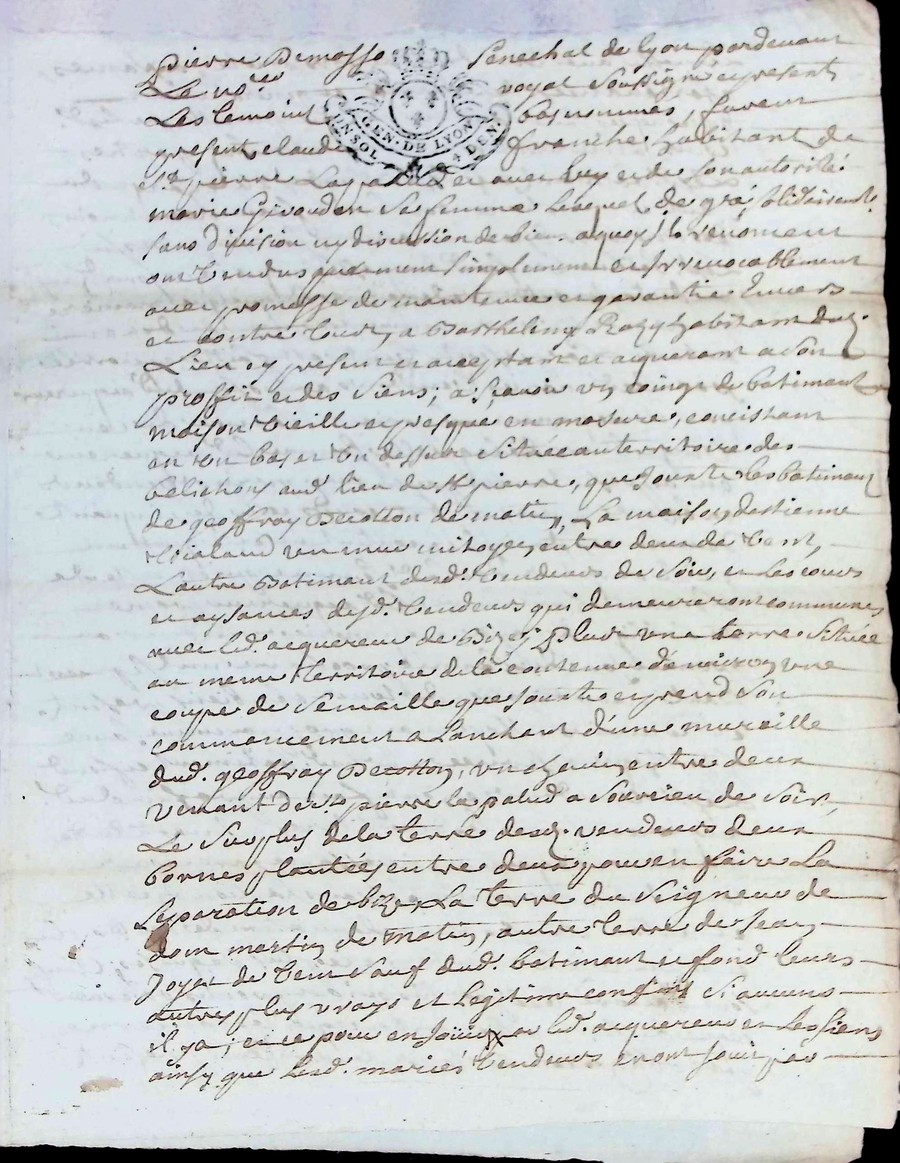 pierre Demasso Senechal de lyon pardevant
Le no.re royal Soussigné et present
Les temoint bas nommés, furent
GEN. DE LYON
UN SOL 4 DEN.
present claude franche habitant de
St. pierre Lapalud et avec luy et de son autorité
marie Giraud en Sa femme Lequel de gré, solidairemt.
sans division ny discussion de bien a quoy Ils renoncent
ont vendus purement simplement et irrevocablement
avec promesse de maintenue et garantie Envers
et contre tout, a Barthelmy habitant dud.
Lieu cy present et acceptant et acquerant a Son
proffit et des Siens; a Scavoir un coing de batimant
maison vieille et presqué en masure, concistant
en un bas et un dessur Situéé au territoire des
belichons aud. lieu de St pierre, que Jouxte les batimans
de geoffray Decotton de matin, La maison d'estienne
vialaud un mur mitoyen entre deux de vent,
L'autre Batimant desd. vendeurs de Soir, et Les cours
et aysances desd. vendeurs qui demeureront communes
avec led. acquereur de Bize; Plus une terre Situéé
au même territoire de la contenue d'environ une
coupe de Semaille que Jouxte et prend Son
commancement a Lanchant d'une muraille
dud. geoffray Decotton, un chemin entre deux
venant de St. pierre la palud a Sourcieu de Soir,
Le Surplus de la terre desd. vendeurs deux
bornes plantéés entre deux pour en faire La
Separation de bize, La terre du Seigneur de
dom martin de matin, autre terre de Jean
Joyet de vent Sauf dud. batimant et fond leurs
autres plus vrays et Legitime confins Si aucuns
il y a; et ce pour en Jouir par led. acquereur et Les Siens
ainsy que Lesd. mariés vendeurs en ont Jouit par